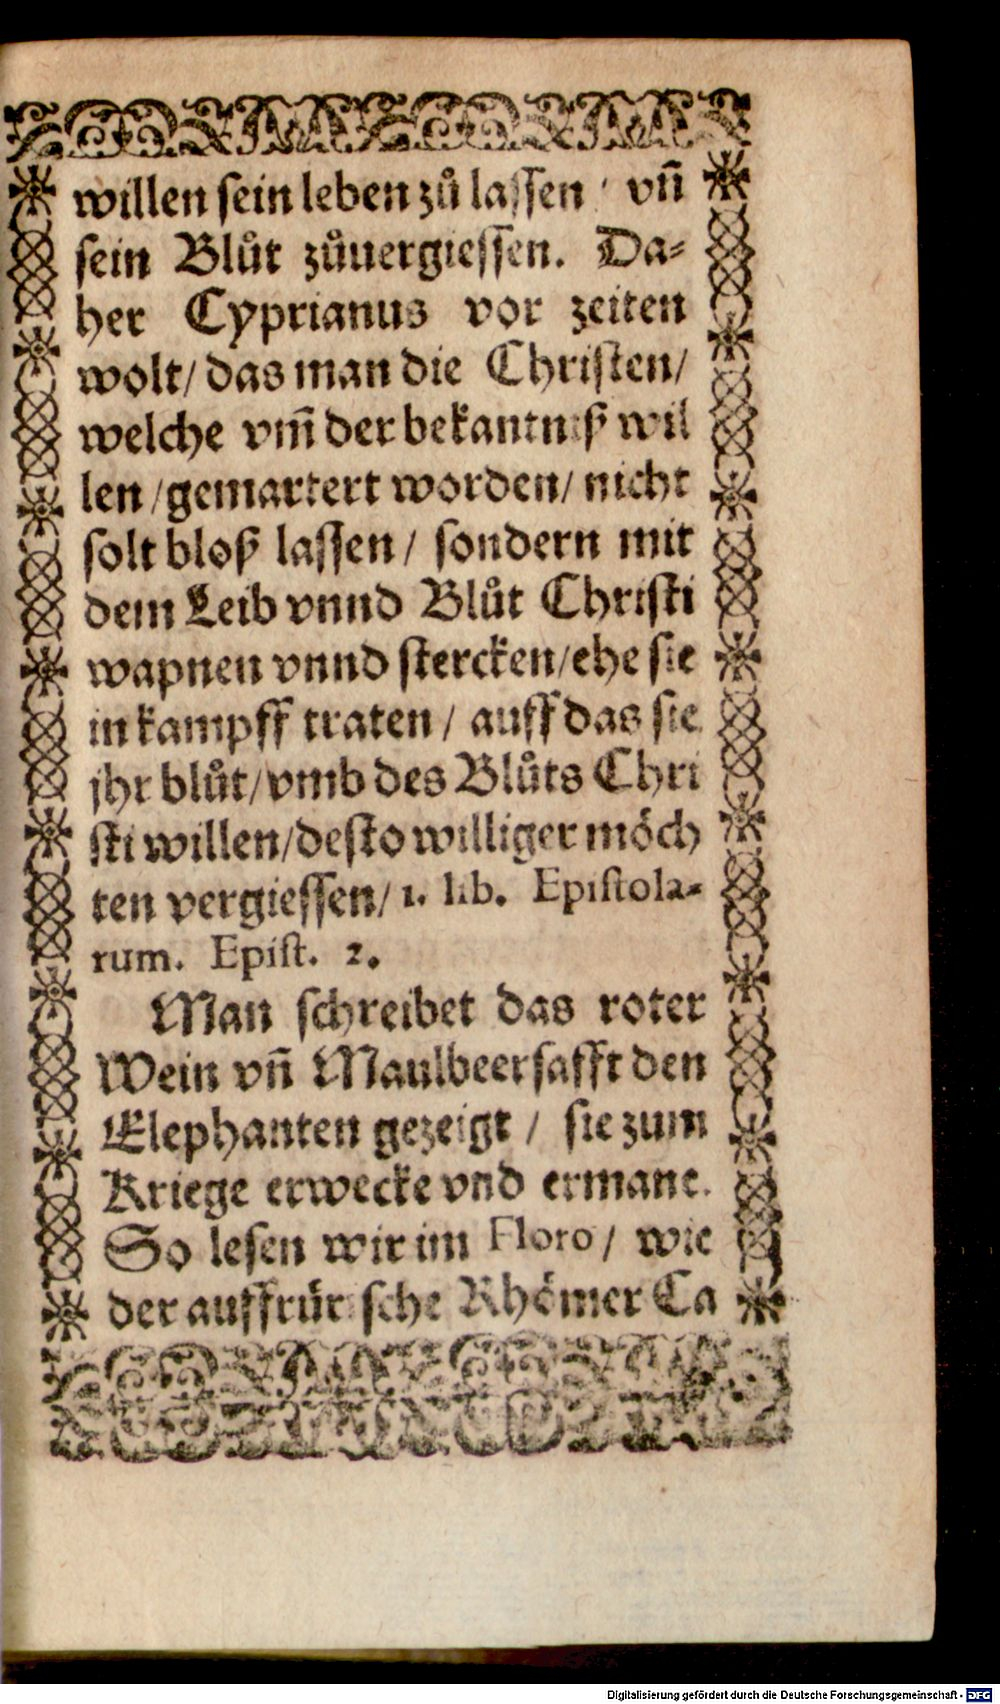 willen sein leben zů lassen / vñ
sein Blůt zůuergiessen. Da-
her Cyprianus vor zeiten
wolt/ das man die Christen/
welche vm̃ der bekantniß wil
len /gemartert worden/ nicht
solt bloß lassen / sondern mit
dem Leib vnnd Blůt Christi
wapnen vnnd stercken/ehe sie
in kampff traten / auff das sie
jhr blůt/vmb des Blůts Chri
sti willen/desto williger möch
ten vergiessen/ 1. lib. Epistola-
rum. Epist. 2.
Man schreibet das roter
Wein vñ Maulbeersafft den
Elephanten gezeigt / sie zum
Kriege erwecke vnd ermane.
So lesen wir im Floro / wie
der auffrürische Rhömer Ca
Digitalisierung gefördert durch die Deutsche Forschungsgemeinschaft - DFG